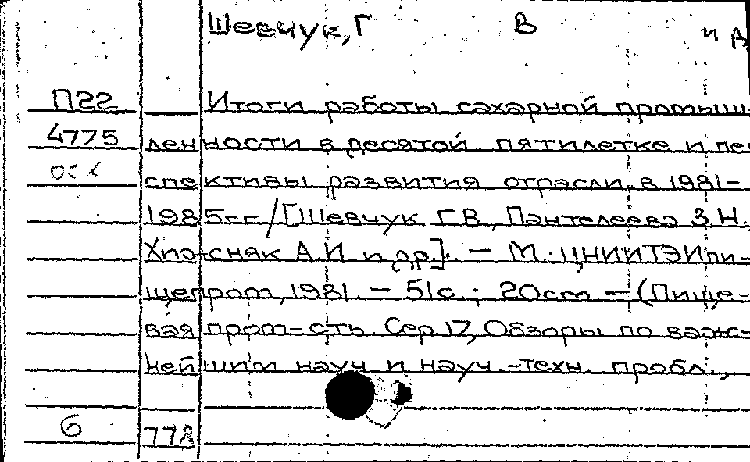 Шевчук, Г В и д
П22 Итоги работы сахарной промыш
4775 ленности в десятой пятилетке и пе
спективы развития отрасли в 1981-
1985гг./[Шевчук Г.В., Пантелеева З.Н.
А.И и др.]. - М. ЦНИИТЭИпи-
щепром, 1981. - 51с.; 20см - (Пище-
вая пром-сть. Сер 17, Обзоры по важ-
нейшим науч. и науч.-техн. пробл.,
6 778